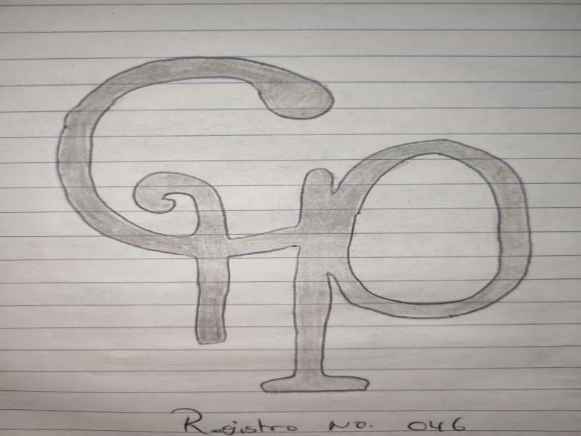 Registro No. 046